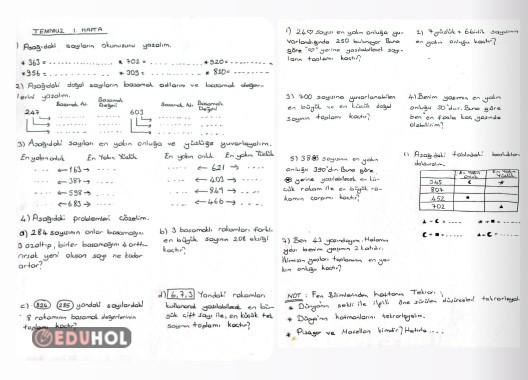 TEMMUZ 1. HAFTA
1) Aşağıdaki sayıların okunuşunu yazalım.
* 363 = .............. * 702 = .............. * 920= ..............
* 956 = .............. * 305 = .............. * 810= ..............
2) Aşağıdaki doğal sayıların basamak adlarını ve basamak değer-
lerini yazalım.
247 Basamak Adı Basamak Değeri 603 Basamak Adı Basamak Değeri
3) Aşağıdaki sayıları en yakın onluğa ve yüzlüğe yuvarlayalım.
En yakın onluk En Yakın Yüzlük En yakın onluk En Yakın Yüzlük
..... ← 163 → ..... ..... ← 621 → .....
..... ← 387 → ..... ..... ← 403 → .....
..... ← 598 → ..... ..... ← 841 → .....
..... ← 683 → ..... ..... ← 460 → .....
4) Aşağıdaki problemleri çözelim.
a) 284 sayısının onlar basamağını
3 azaltıp, birler basamağını 4 arttı-
rırsak yeni oluşan sayı ne kadar
artar?
b) 3 basamaklı rakamları farklı
en büyük sayının 208 eksiği
kaçtır?
c) 824 285 yandaki sayılardaki
8 rakamının basamak değerlerinin
toplamı kaçtır?
d) 6,7,3 Yandaki rakamları
kullanarak yazılabilecek en bü-
yük çift sayı ile, en küçük tek
sayının toplamı kaçtır?
EDUHOL
1) 24 sayısı en yakın onluğa yu-
varlandığında 250 buluyor. Buna
göre yerine yazılabilecek say-
ıların toplamı kaçtır?
2) 7 yüzlük + 6 birlik sayısının
en yakın onluğu kaçtır?
3) 700 sayısına yuvarlanabilen
en büyük ve en küçük doğal
sayının toplamı kaçtır?
4) Benim yaşımın en yakın
onluğu 30'dur. Buna göre
ben en fazla kaç yaşında
olabilirim?
5) 38 sayısının en yakın
onluğu 390'dır. Buna göre
yerine yazılabilecek en kü-
çük rakam ile en büyük ra-
kamın çarpımı kaçtır?
Aşağıdaki tablodaki boşlukları
dolduralım.
En Yakın Onluk En Yakın Yüzlük
345
807
452
702
7) Ben 43 yaşındayım. Halamın
yaşı benim yaşımın 2 katıdır.
İkimizin yaşları toplamının en ya-
kın onluğu kaçtır?
NOT: Fen Bilimlerinden haftanın Tekrarı
* Dünya'nın şekli ile ilgili öne sürülen düşünceleri tekrarlayalım.
* Dünya'nın katmanlarını tekrarlayalım.
* Pisagor ve Macellan kimdir? Hatırla....